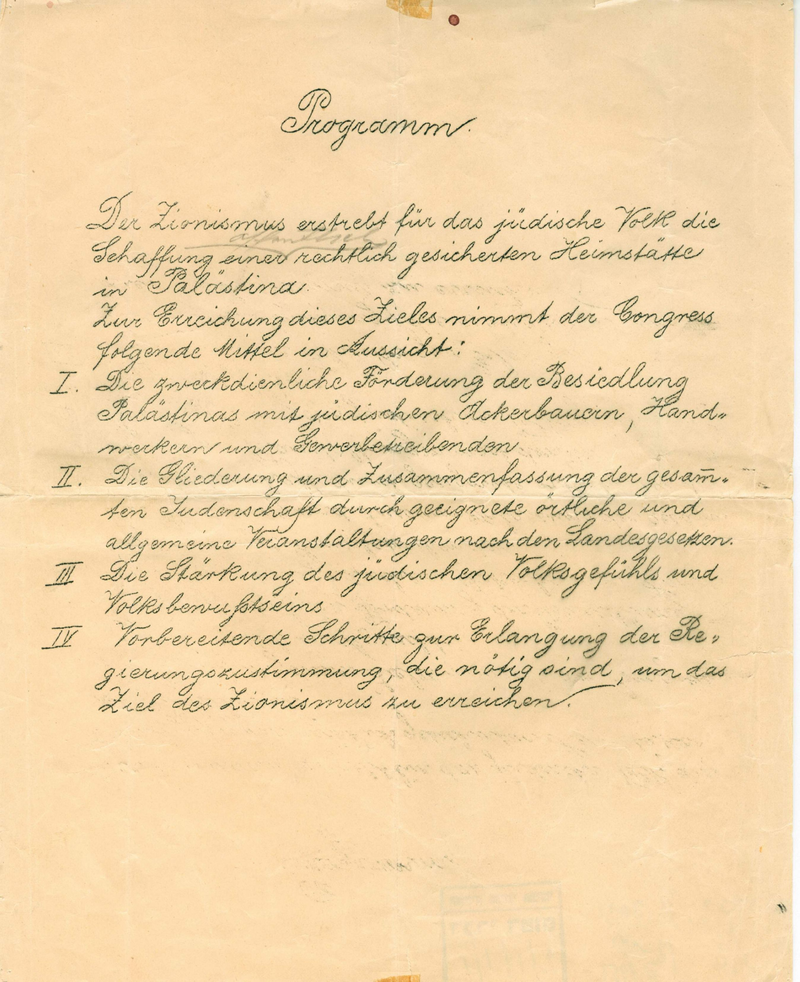 Programm.
Der Zionismus erstrebt für das jüdische Volk die
Schaffung einer rechtlich gesicherten Heimstätte
in Palästina.
Zur Erreichung dieses Zieles nimmt der Congress
folgende Mittel in Aussicht:
I. Die zweckdienliche Förderung der Besiedlung
Palästinas mit jüdischen Ackerbauern, Hand=
werkern und Gewerbetreibenden
II. Die Gliederung und Zusammenfassung der gesam̅=
ten Judenschaft durch geeignete örtliche und
allgemeine Veranstaltungen nach den Landesgesetzen.
III Die Stärkung des jüdischen Volksgefühls und
Volksbewußtseins
IV Vorbereitende Schritte zur Erlangung der Re=
gierungszustimmung, die nötig sind, um das
Ziel des Zionismus zu erreichen.